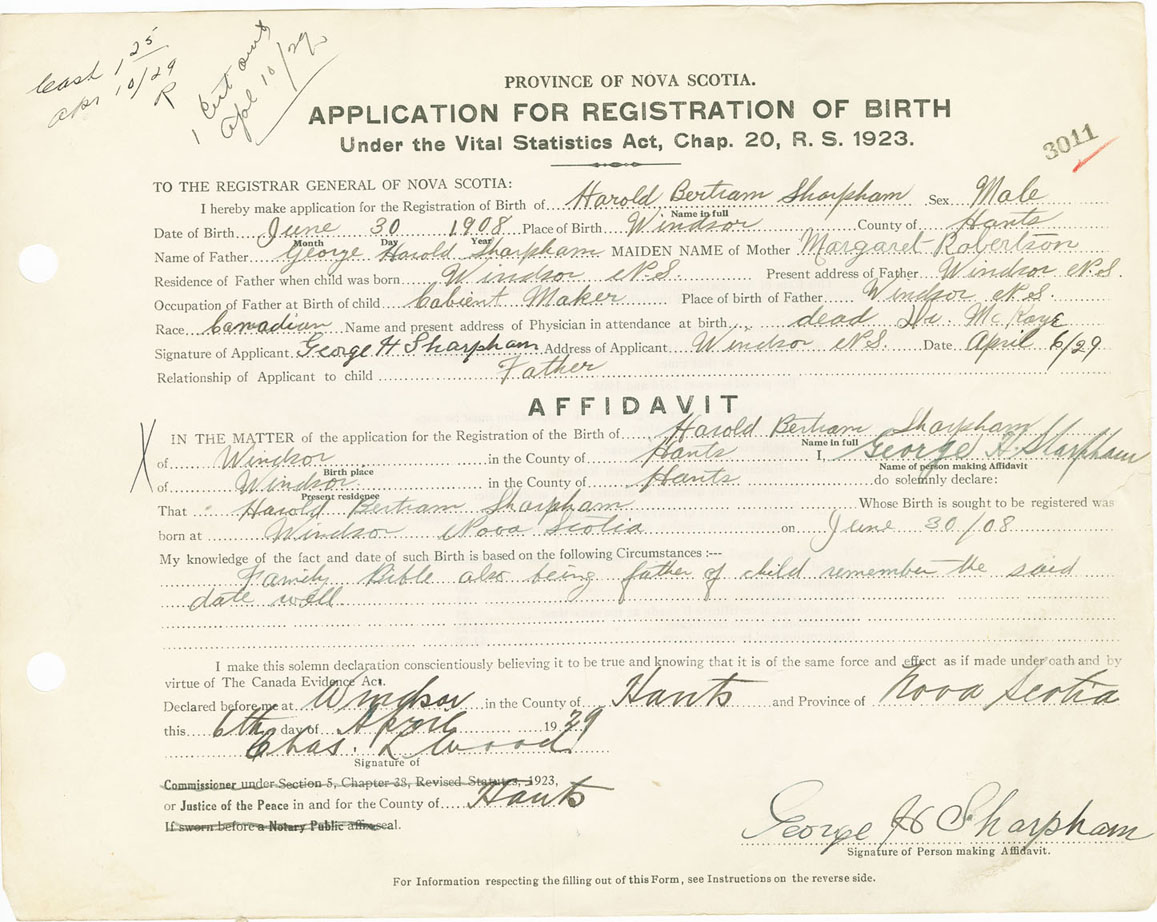 Cash 1 25
Apr 10/29
R
1 Cert out
Apl 10/29
PROVINCE OF NOVA SCOTIA.
APPLICATION FOR REGISTRATION OF BIRTH
Under the Vital Statistics Act, Chap. 20, R. S. 1923.
3011
TO THE REGISTRAR GENERAL OF NOVA SCOTIA:
I hereby make application for the Registration of Birth of Harold Bertram Sharpham Sex Male
Name in full
Date of Birth June 30 1908 Place of Birth Windsor County of Hants
Month Day Year
Name of Father George Harold Sharpham MAIDEN NAME of Mother Margaret Robertson
Residence of Father when child was born Windsor N.S. Present address of Father Windsor N.S.
Occupation of Father at Birth of child Cabient Maker Place of birth of Father Windsor N.S.
Race Canadian Name and present address of Physician in attendance at birth dead Dr. McKaye
Signature of Applicant George H Sharpham Address of Applicant Windsor N.S. Date April 6/29
Relationship of Applicant to child Father
AFFIDAVIT
X
IN THE MATTER of the application for the Registration of the Birth of Harold Bertram Sharpham
Name in full
of Windsor in the County of Hants I, George H Sharpham
Birth place Name of person making Affidavit
of Windsor in the County of Hants do solemnly declare:
Present residence
That Harold Bertram Sharpham Whose Birth is sought to be registered was
born at Windsor Nova Scotia on June 30/08
My knowledge of the fact and date of such Birth is based on the following Circumstances :---
Family Bible also being father of child remember the said
date well.
I make this solemn declaration conscientiously believing it to be true and knowing that it is of the same force and effect as if made under oath and by
virtue of The Canada Evidence Act.
Declared before me at Windsor in the County of Hants and Province of Nova Scotia
this 6th day of April 1929
Chas. L Wood
Signature of
Commissioner under Section 5, Chapter 38, Revised Statutes, 1923,
or Justice of the Peace in and for the County of Hants
If sworn before a Notary Public affix seal.
George H Sharpham
Signature of Person making Affidavit.
For Information respecting the filling out of this Form, see Instructions on the reverse side.